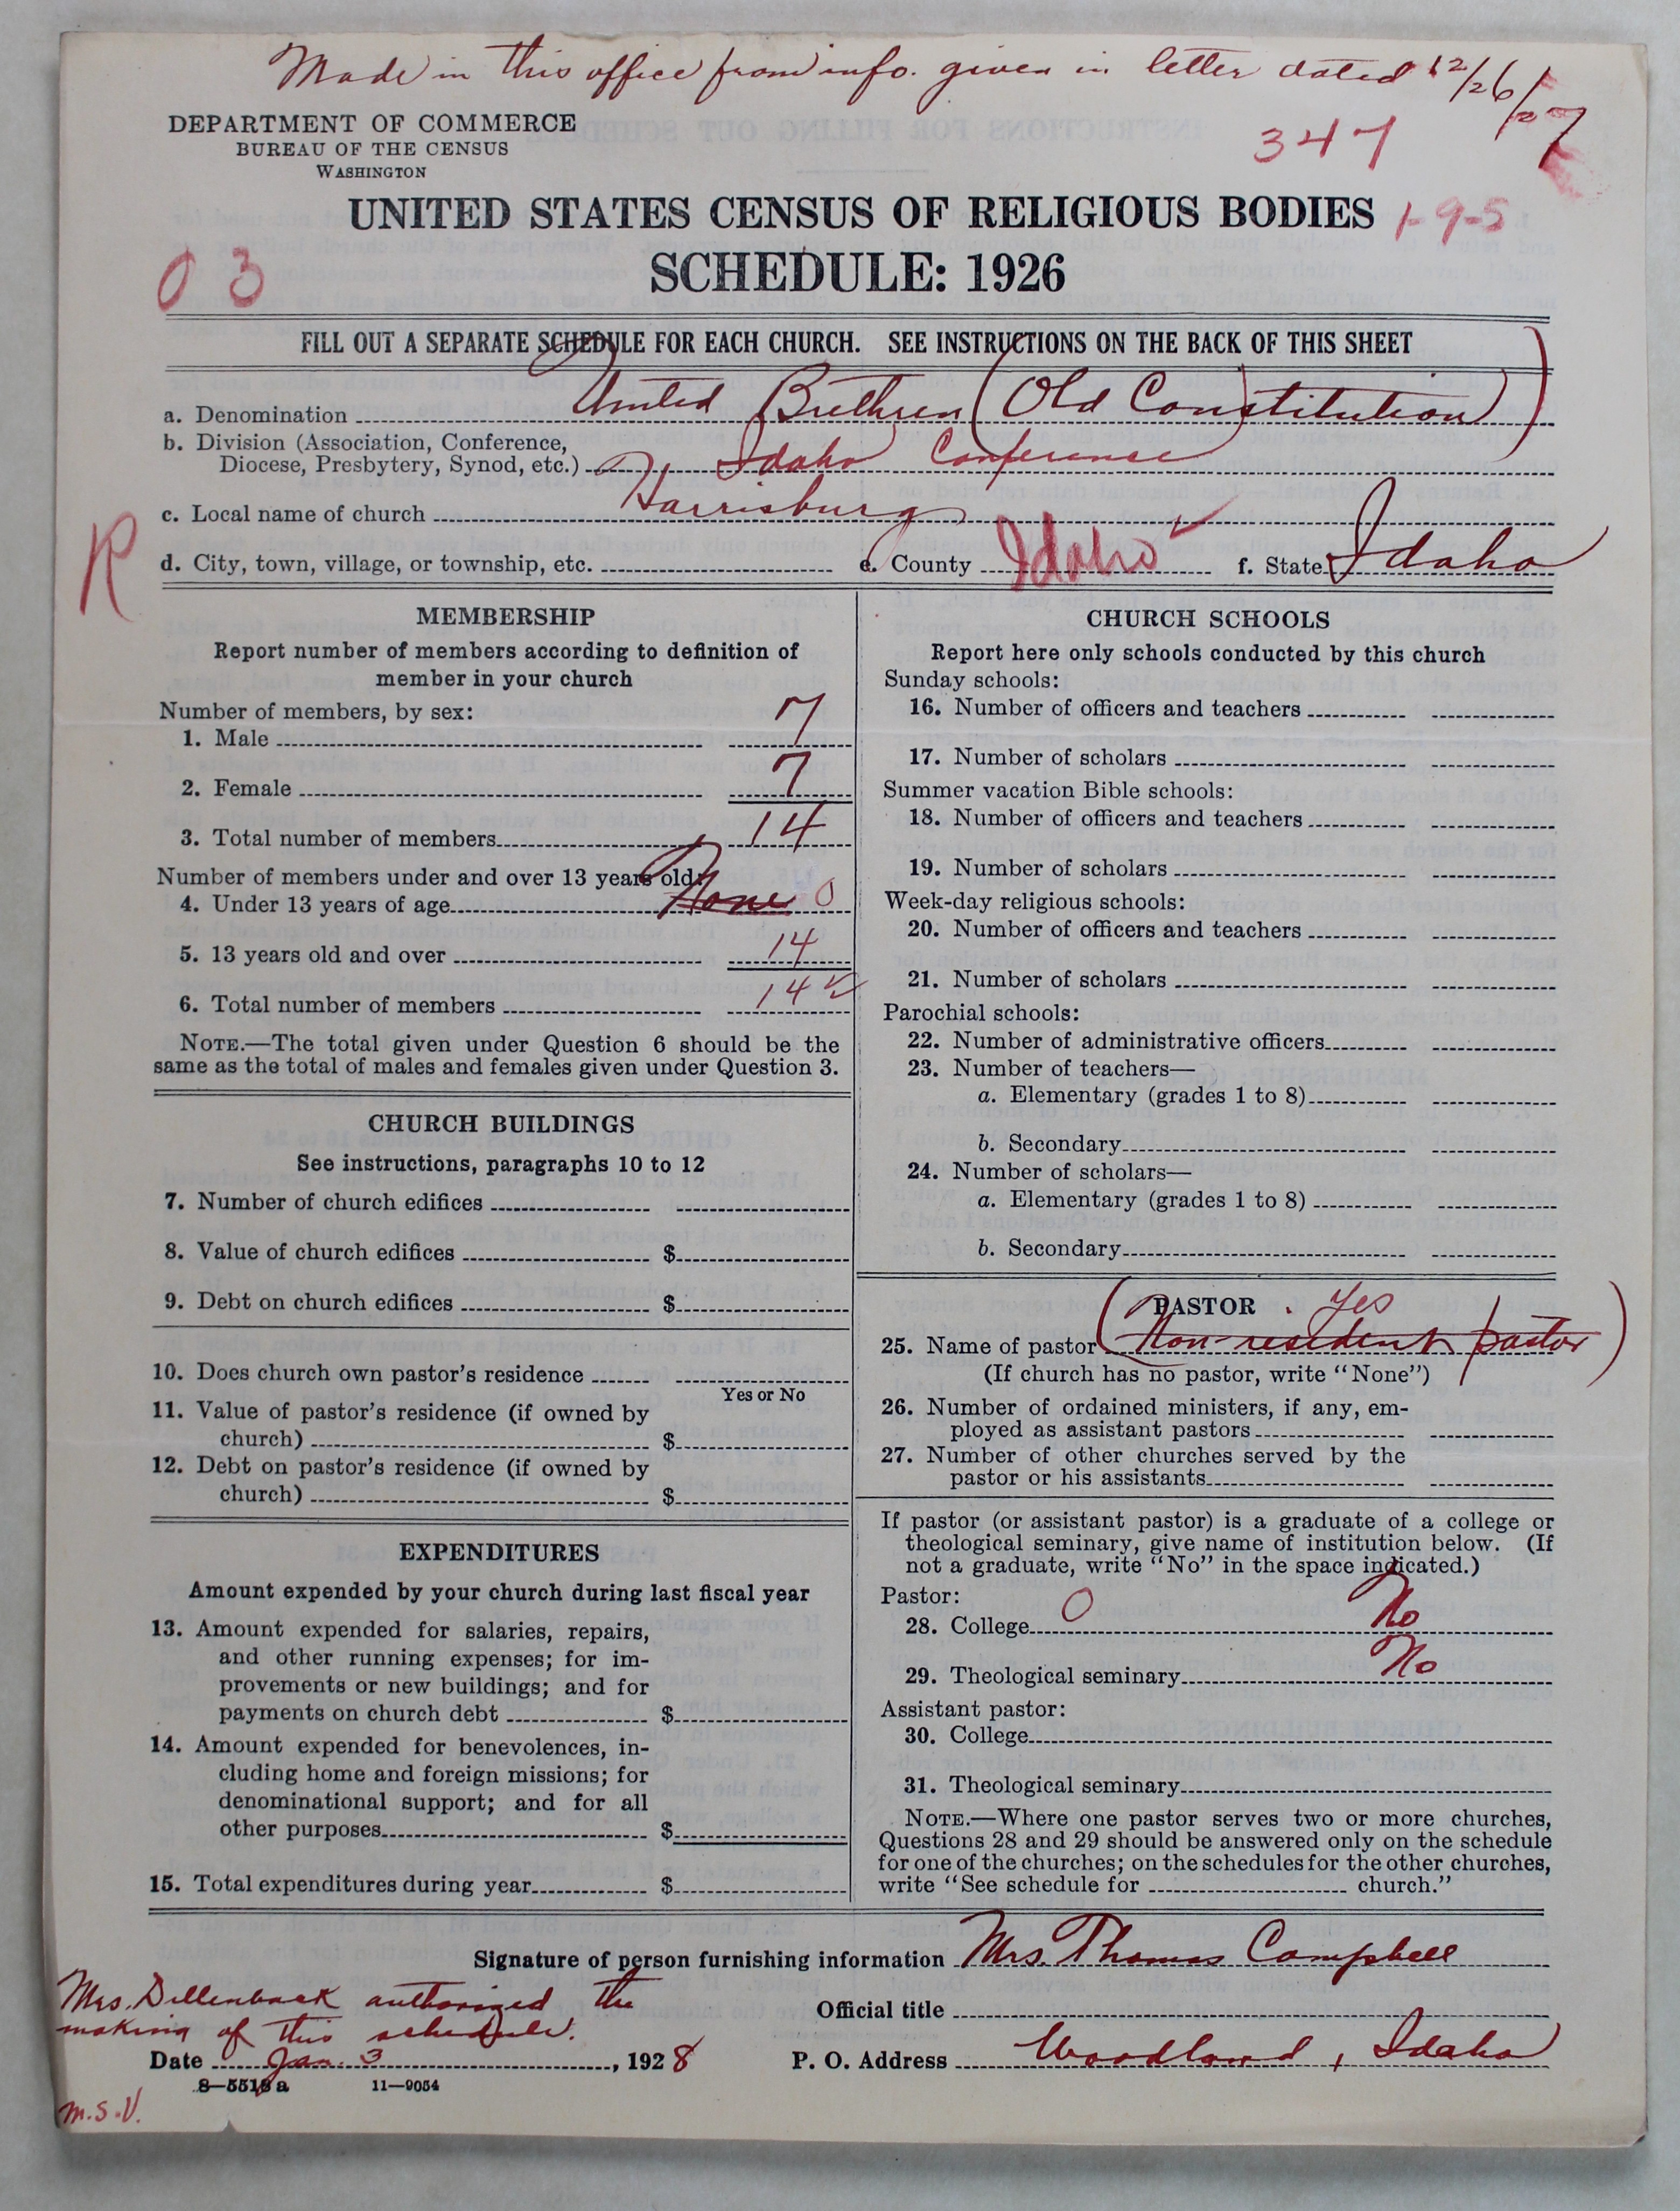 Made in this office from info. given in letter dated 12/26/27
DEPARTMENT OF COMMERCE
BUREAU OF THE CENSUS
WASHINGTON
347
UNITED STATES CENSUS OF RELIGIOUS BODIES 1-9-5
03
SCHEDULE: 1926
FILL OUT A SEPARATE SCHEDULE FOR EACH CHURCH. SEE INSTRUCTIONS ON THE BACK OF THIS SHEET
a. Denomination United Brethren (Old Constitution)
b. Division (Association, Conference,
Diocese, Presbytery, Synod, etc.) Idaho Conference
c. Local name of church Harrisburg
R
d. City, town, village, or township, etc. e. County Idaho ✓ f. State Idaho
MEMBERSHIP
Report number of members according to definition of
member in your church
Number of members, by sex:
1. Male 7
2. Female 7
3. Total number of members 14
Number of members under and over 13 years old:
4. Under 13 years of age None 0
5. 13 years old and over 14
6. Total number of members 14 ✓
NOTE.—The total given under Question 6 should be the
same as the total of males and females given under Question 3.
CHURCH BUILDINGS
See instructions, paragraphs 10 to 12
7. Number of church edifices
8. Value of church edifices $
9. Debt on church edifices $
10. Does church own pastor's residence
Yes or No
11. Value of pastor's residence (if owned by
church) $
12. Debt on pastor's residence (if owned by
church) $
EXPENDITURES
Amount expended by your church during last fiscal year
13. Amount expended for salaries, repairs,
and other running expenses; for im-
provements or new buildings; and for
payments on church debt $
14. Amount expended for benevolences, in-
cluding home and foreign missions; for
denominational support; and for all
other purposes $
15. Total expenditures during year $
CHURCH SCHOOLS
Report here only schools conducted by this church
Sunday schools:
16. Number of officers and teachers
17. Number of scholars
Summer vacation Bible schools:
18. Number of officers and teachers
19. Number of scholars
Week-day religious schools:
20. Number of officers and teachers
21. Number of scholars
Parochial schools:
22. Number of administrative officers
23. Number of teachers—
a. Elementary (grades 1 to 8)
b. Secondary
24. Number of scholars—
a. Elementary (grades 1 to 8)
b. Secondary
PASTOR . Yes
25. Name of pastor (Non-resident pastor)
(If church has no pastor, write "None")
26. Number of ordained ministers, if any, em-
ployed as assistant pastors
27. Number of other churches served by the
pastor or his assistants
If pastor (or assistant pastor) is a graduate of a college or
theological seminary, give name of institution below. (If
not a graduate, write "No" in the space indicated.)
Pastor:
28. College 0 No
29. Theological seminary No
Assistant pastor:
30. College
31. Theological seminary
NOTE.—Where one pastor serves two or more churches,
Questions 28 and 29 should be answered only on the schedule
for one of the churches; on the schedules for the other churches,
write "See schedule for church."
Signature of person furnishing information Mrs. Thomas Campbell
Mrs. Dillenback authorized the
making of this schedule.
Official title
Date Jan. 3, 1928 P. O. Address Woodland, Idaho
8—5518 a 11—9054
M.S.V.